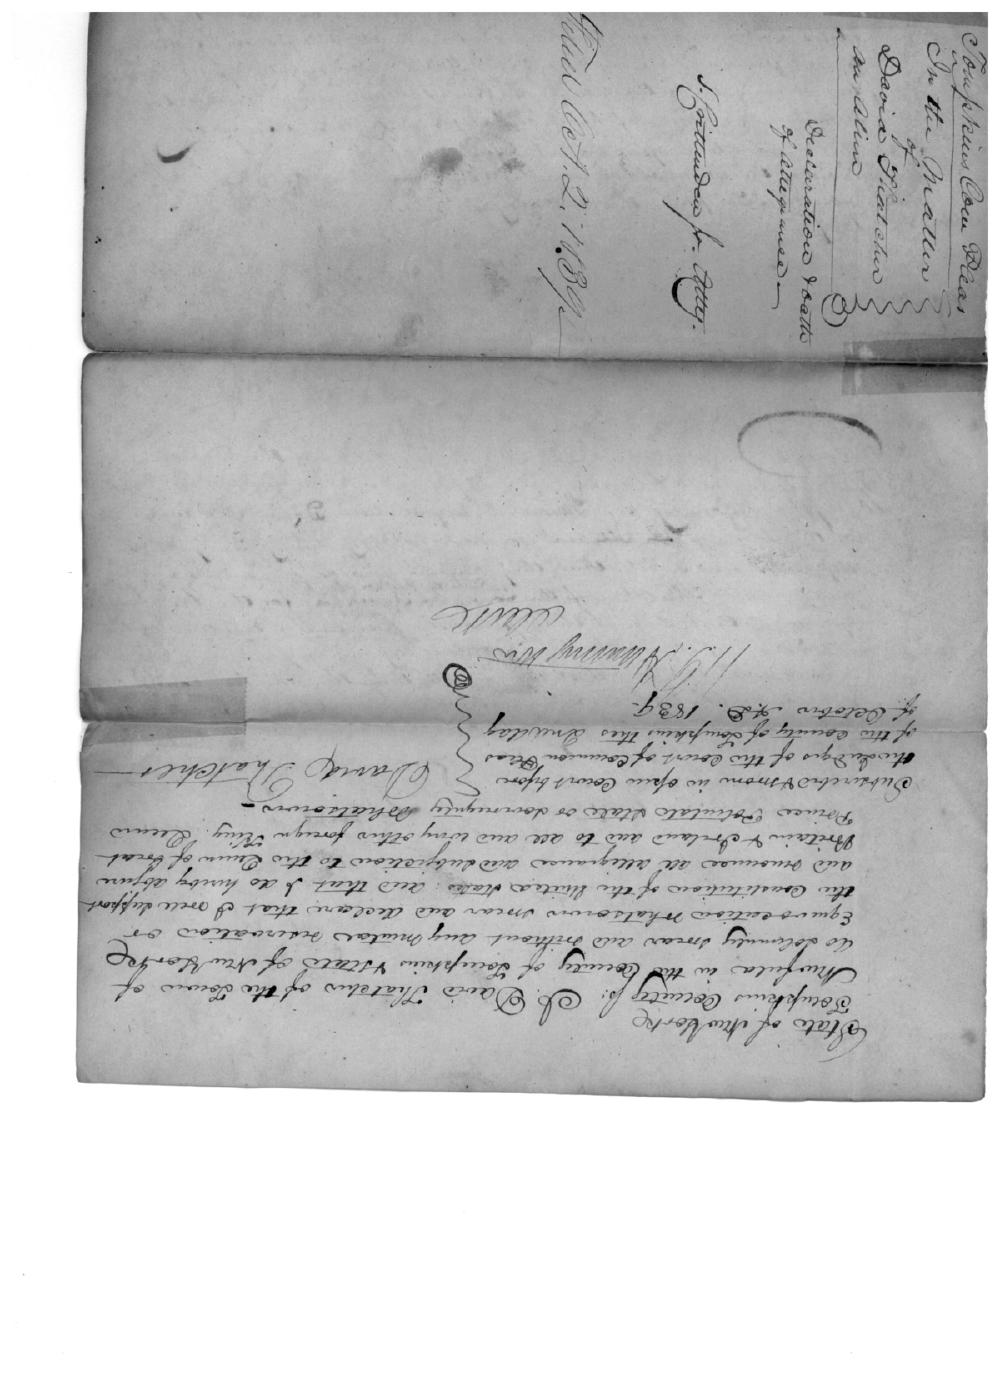 Tompkins Com Pleas
In the Matter
of
David Thatcher
an Alien
Declaration & oath
of Allegiance
S. Crittenden Jr. Atty.
Filed Oct. 2. 1839
State of New York
Tompkins County ss: I David Thatcher of the Town of
in the County of Tompkins & State of New York
do solemnly swear and without any mental reservation or
Equivocation Whatsoever swear and declare that I will support
the Constitution of the United States: and that I do hereby abjure
and renounce all allegiance and subjection to the Queen of Great
Britain & Ireland and to all and every other foreign King Queen
Prince Potentate State or Sovereignty Whatsoever
Subscribed & sworn in open Court before
the Judges of the Court of Common Pleas
of the County of Tompkins this 2nd day
of October A.D. 1839.
David Thatcher
Clerk